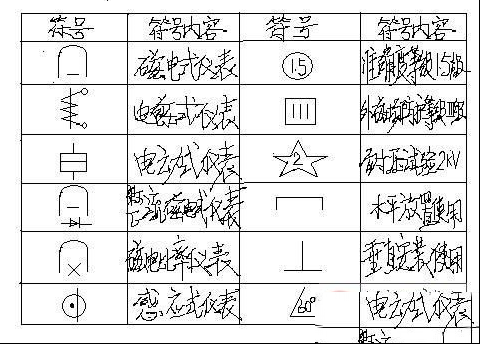 符号 符号内容 符号 符号内容
磁电式仪表 1.5 准确度等级1.5级
电磁式仪表 III 外磁场防护等级III级
电动式仪表 2 耐压试验2KV
整流磁电式仪表 水平放置使用
磁电比率仪表 垂直安装使用
感应式仪表 60° 电动式仪表
整流